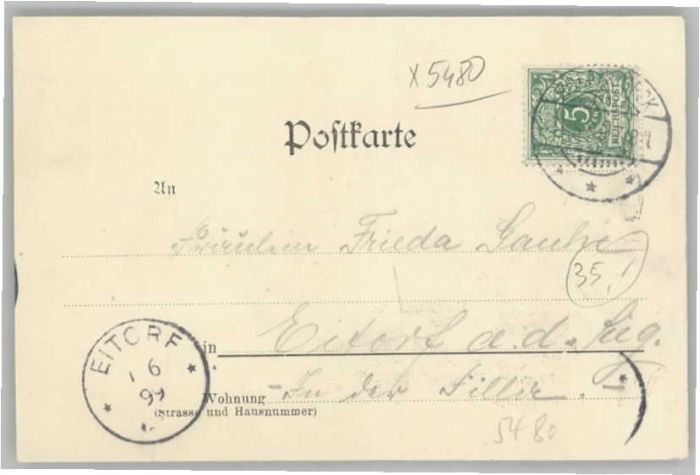 x 5480
Postkarte
5
An
Fräulein Frieda
35,!
Eitorf a. d. Sieg.
in
EITORF
1 6
99
Wohnung
In der
(Strasse und Hausnummer)
5480